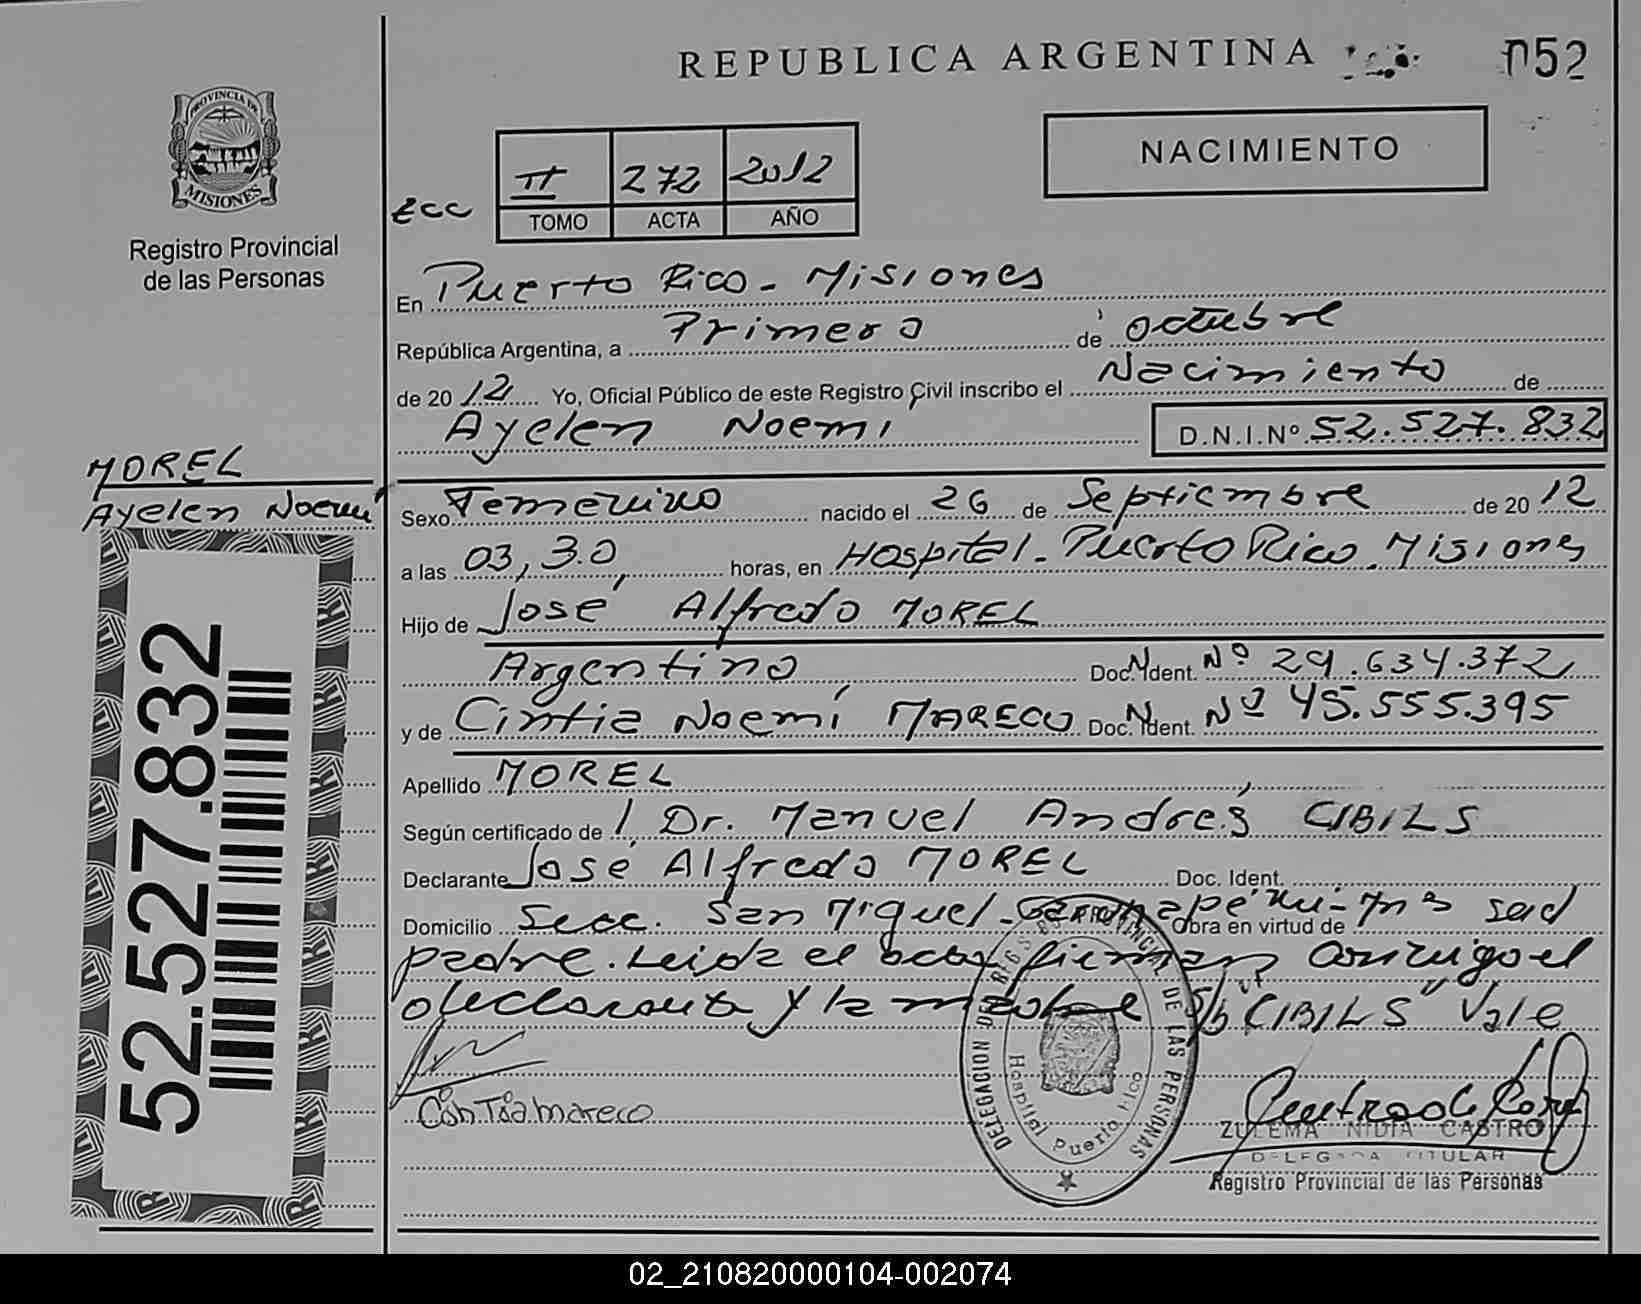 REPUBLICA ARGENTINA
052
PROVINCIA DE
MISIONES
Registro Provincial
de las Personas
NACIMIENTO
ECC
II 272 2012
TOMO ACTA AÑO
En Puerto Rico - Misiones
República Argentina, a Primero de octubre
de 2012 Yo, Oficial Público de este Registro Civil inscribo el Nacimiento de
Ayelen Noemi D.N.I.Nº 52.527.832
MOREL
Ayelen Noemi
Sexo Femenino nacido el 26 de Septiembre de 2012
a las 03,30 horas, en Hospital - Puerto Rico, Misiones
Hijo de José Alfredo MOREL
Argentino Doc. Ident. Nº 29.634.372
y de Cintia Noemí MARECO Doc. Ident. Nº 45.555.395
Apellido MOREL
Según certificado de Dr. Manuel Andrés CIBILS
Declarante José Alfredo MOREL Doc. Ident.
Domicilio Secc. San Miguel - Obra en virtud de
padre. Leida el acta firman conmigo el
declarante y la madre S/b "CIBILS" Vale
52.527.832
Cintia mareco
DELEGACION DE PROVINCIAL DE LAS PERSONAS
Hospital Puerto Rico
ZULEMA NIDIA CASTRO
DELEGADA TITULAR
Registro Provincial de las Personas
02_210820000104-002074